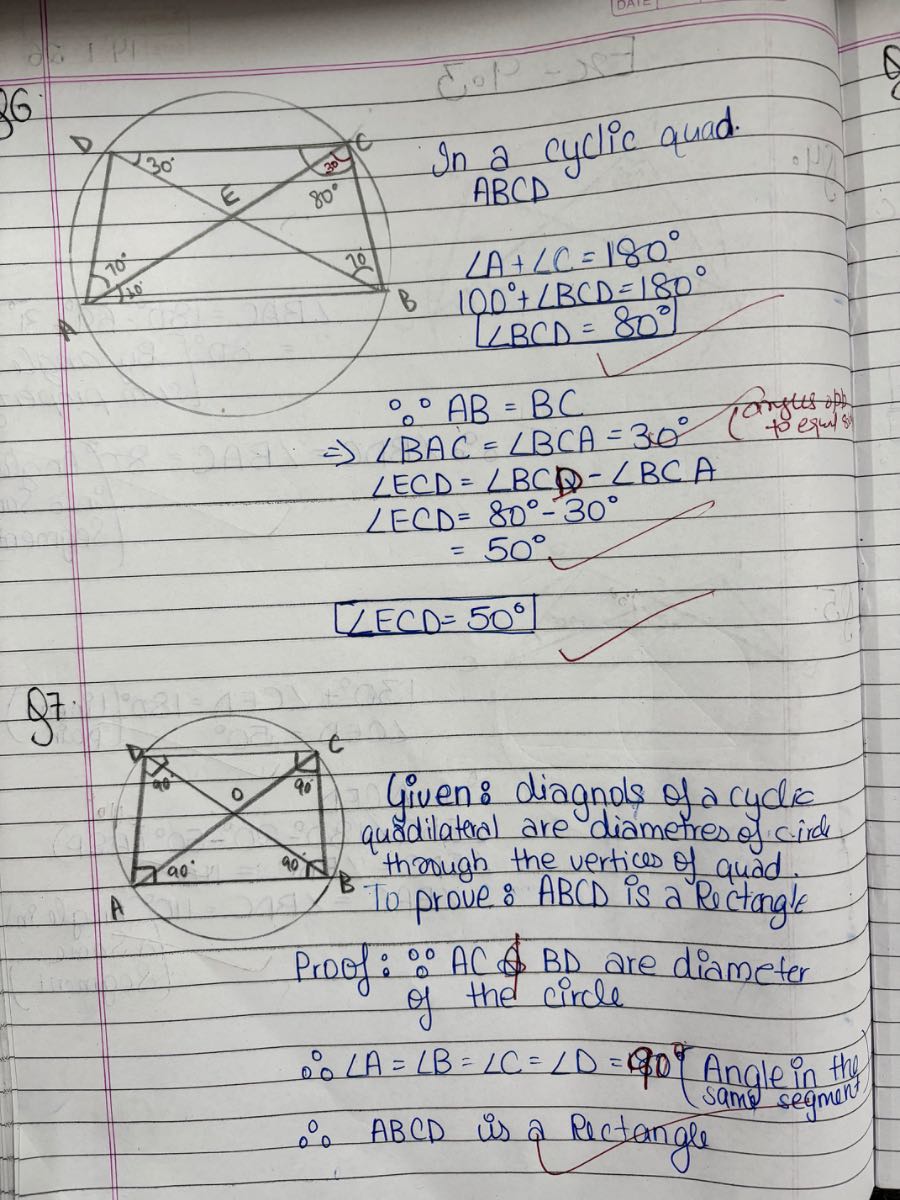 DATE
Q6.
D
C
30°
30°
E
80°
70°
30°
70°
A
B
In a cyclic quad.
ABCD
∠A + ∠C = 180°
100° + ∠BCD = 180°
∠BCD = 80°
∵ AB = BC
(angles opp
to equal
⇒ ∠BAC = ∠BCA = 30°
∠ECD = ∠BCD - ∠BCA
∠ECD = 80° - 30°
= 50°
∠ECD = 50°
Q7.
D
C
90°
90°
O
90°
90°
A
B
Given: diagnols of a cyclic
quadilateral are diametres of circle
through the vertices of quad.
To prove: ABCD is a Rectangle
Proof: ∵ AC & BD are diameter
of the circle
∴ ∠A = ∠B = ∠C = ∠D = 90° (Angle in the
same segment)
∴ ABCD is a Rectangle